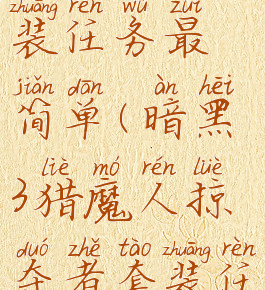 zhuāng rèn wù zuì
装任务最
jiǎn dān àn hēi
简单(暗黑
liè mó rén lüè
3猎魔人掠
duó zhě tào zhuāng rèn
夺者套装任